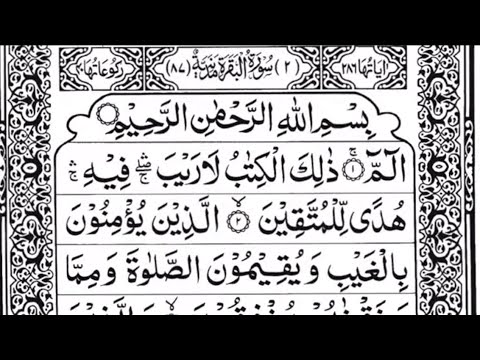 اٰيَاتُهَا ٢٨٦ (٢) سُوْرَةُ الْبَقَرَةِ مَدَنِيَّةٌ (٨٧) رُكُوْعَاتُهَا ٤٠
بِسْمِ اللهِ الرَّحْمٰنِ الرَّحِيْمِ
الٓمّٓ ۚ ١ ذٰلِكَ الْكِتٰبُ لَا رَيْبَ ۛۖۚ فِيْهِ ۛۚ
هُدًى لِّلْمُتَّقِيْنَ ۙ ٢ الَّذِيْنَ يُؤْمِنُوْنَ
بِالْغَيْبِ وَيُقِيْمُوْنَ الصَّلٰوةَ وَمِمَّا